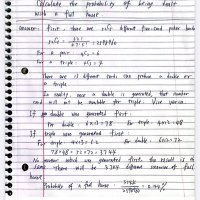 Calculate the probability of being dealt
with a full house
Answer: First: there are 52C5 different five-card poker hands
52C5 = 52! / 47! × 5! = 2598960
For a pair 4C2 = 6
For a triple 4C3 = 4
There are 13 different cards can produce a double or
a triple.
In reality, once a double is generated, that number
card will not be available for triple. Vice versa
If double was generated first:
For double : 6×13 = 78 For triple: 4×12 = 48
If triple was generated first:
For triple 4×13 = 52 For double: 6×12 = 72
78×48 = 52×72 = 3744
No matter which was generated first, the result is the
same. There will be 3744 different scenarios of full
house.
Probability of a full house = 3744 / 2598960 = 0.144%